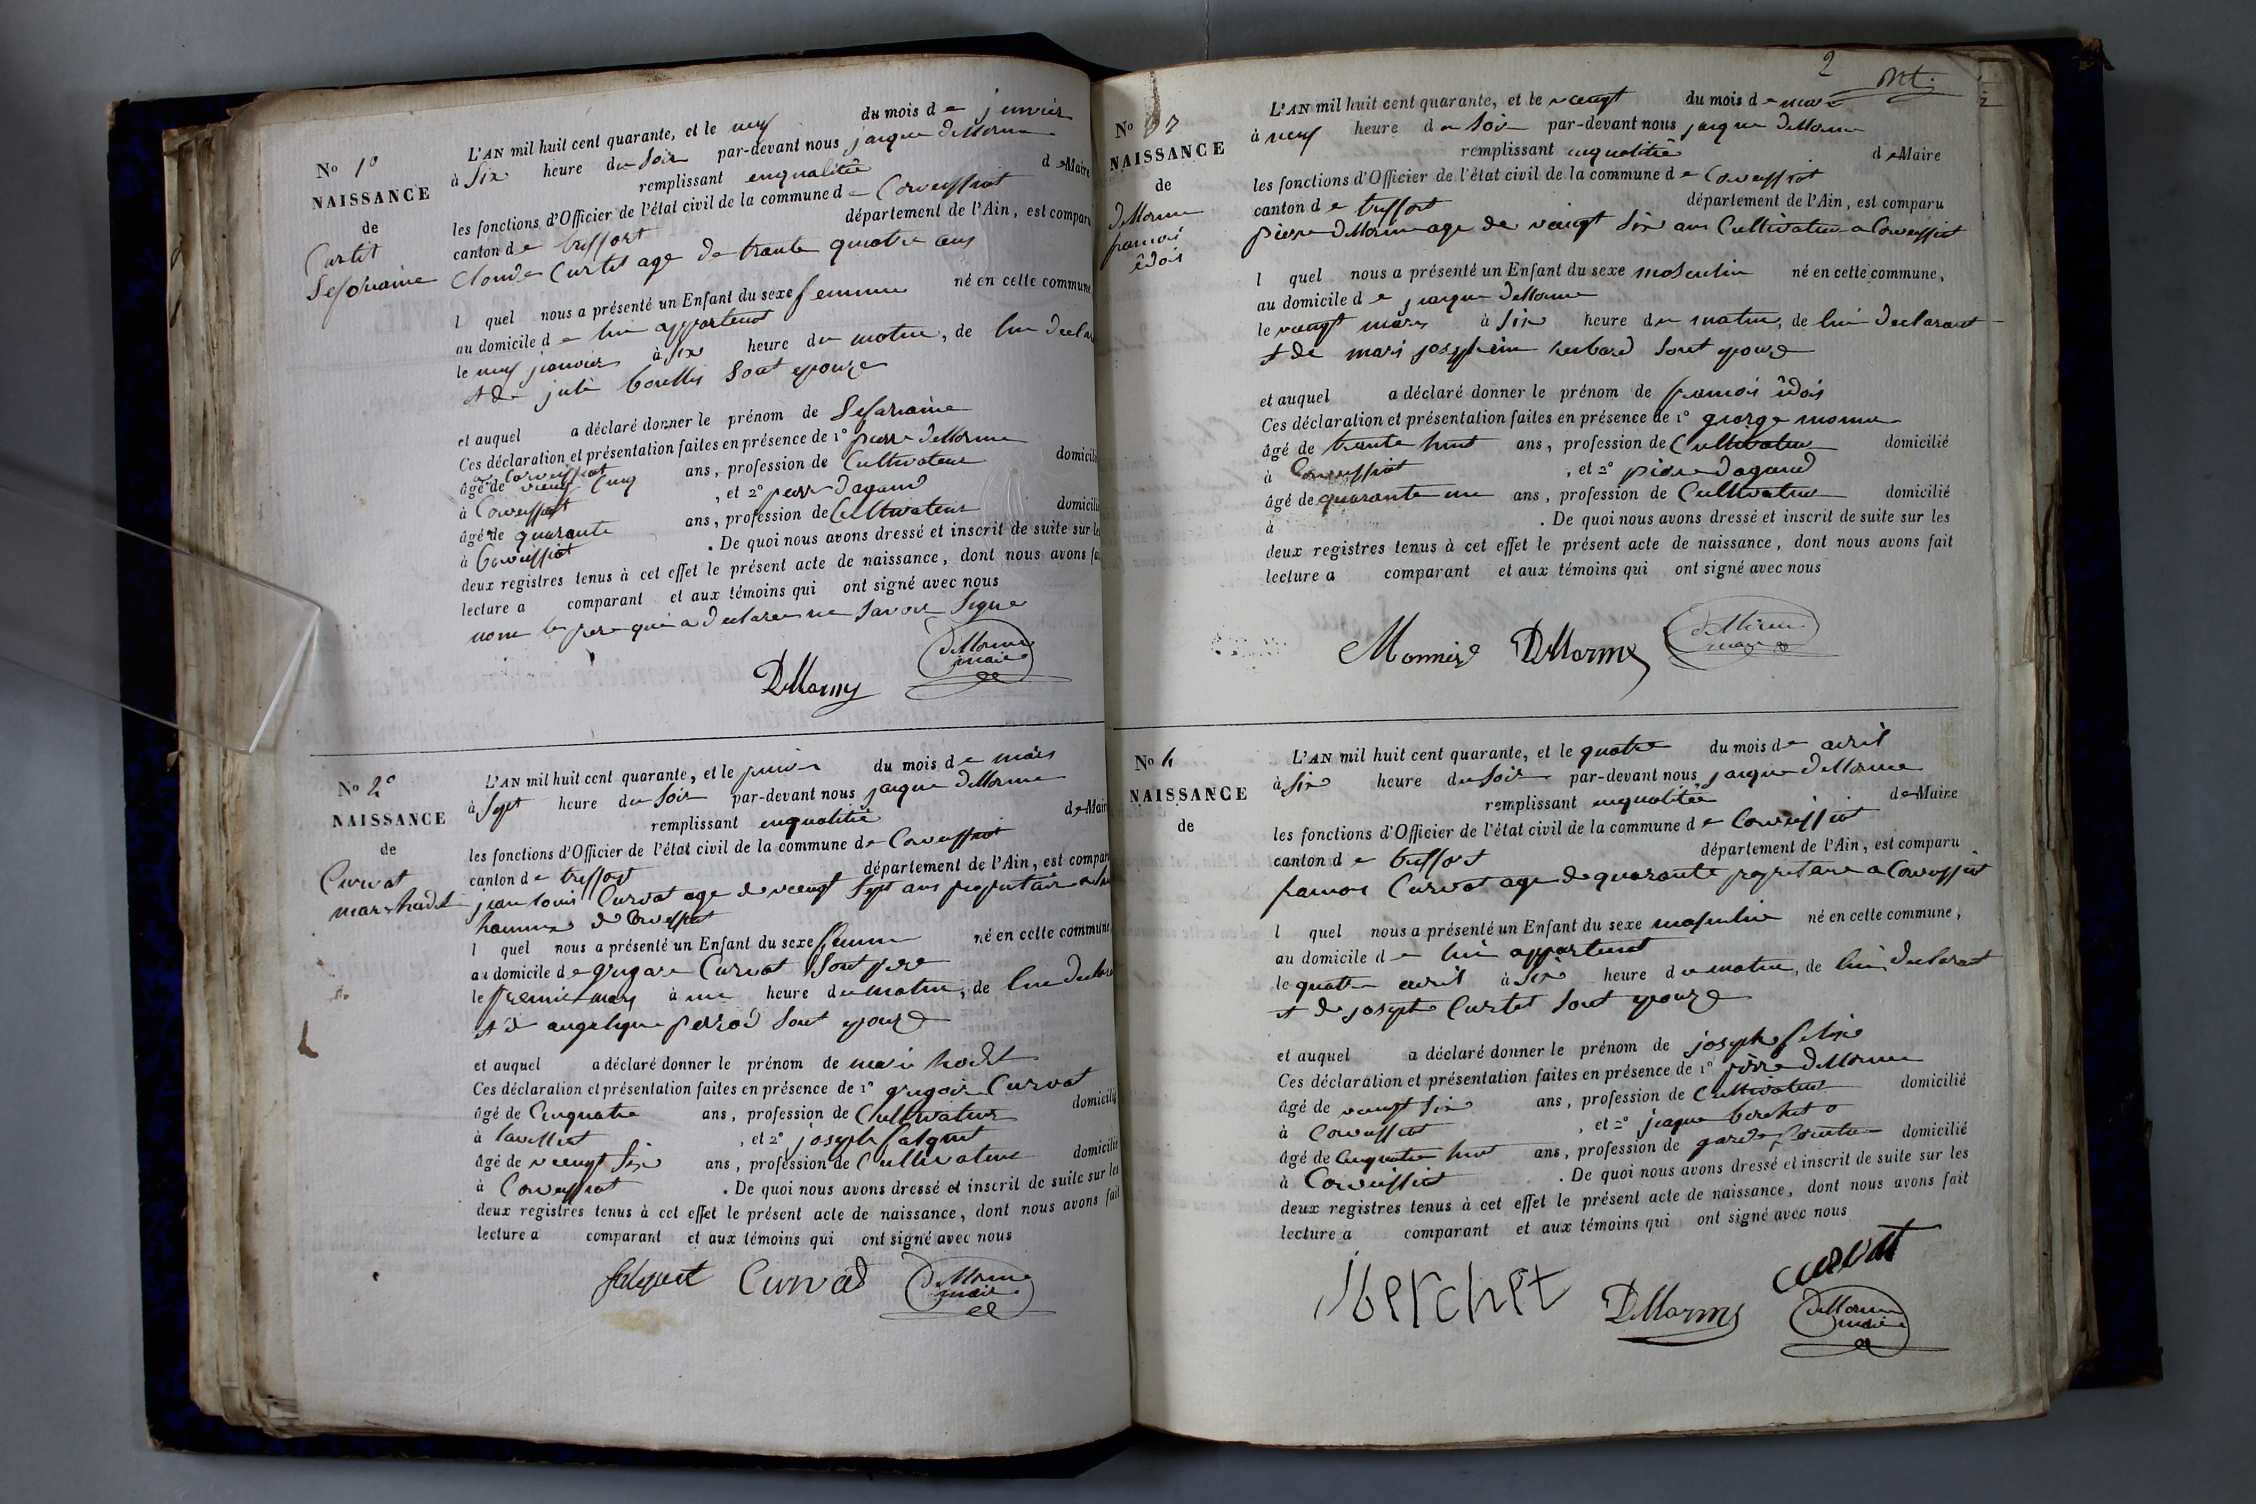 No 1o
NAISSANCE
de
Curtit
Sefforiaine
L'AN mil huit cent quarante, et le neuf du mois de janvier
à six heure du soir par-devant nous jaque deLorme
remplissant enqualitée de Maire
les fonctions d'Officier de l'état civil de la commune de Corveissiat
canton de treffort département de l'Ain, est comparu
Claude Curtit age de trante quatre ans
l quel nous a présenté un Enfant du sexe femme né en cette commune
au domicile de lui appartenat
le neuf janvier à six heure du matin, de lui decla
et de juli Borellis sont epouze
et auquel a déclaré donner le prénom de
Ces déclaration et présentation faites en présence de 1o pierre deLorme
a Corveissiat
âgé de cinq ans, profession de Cultivateur domicilié
à Corveissiat, et 2o pierre dagand
âgé de quarante ans, profession de Cultivateur domicilié
à Corveissiat. De quoi nous avons dressé et inscrit de suite sur les
deux registres tenus à cet effet le présent acte de naissance, dont nous avons fai
lecture a comparant et aux témoins qui ont signé avec nous
non le pere qui a declare ne savoir signe
DeLorme
deLorme
maire
No 2o
NAISSANCE
de
Curvat
L'AN mil huit cent quarante, et le premier du mois de mars
à sept heure du soir par-devant nous jaque deLorme
remplissant enqualitée de Mair
les fonctions d'Officier de l'état civil de la commune de Corveissiat
canton de treffort département de l'Ain, est compar
jean louis Curvat age de veengt sept ans propritaire
hammex de Corveissiat
l quel nous a présenté un Enfant du sexe femme né en cette commune
au domicile de gregoire Curvat sont pere
le premie mars à une heure du matin, de lui declara
et d angelique perrod sont epouze
et auquel a déclaré donner le prénom de mari
Ces déclaration et présentation faites en présence de 1o gregoire Curvat
âgé de Cinquatre ans, profession de Cultivateur domicilié
à, et 2o joseph falquet
âgé de veengt six ans, profession de Cultivateur domicilié
à Corveissiat. De quoi nous avons dressé et inscrit de suite sur les
deux registres tenus à cet effet le présent acte de naissance, dont nous avons fait
lecture a comparant et aux témoins qui ont signé avec nous
falquet Curvat deLorme
maire
2
No 3
NAISSANCE
de
deLorme
framois
îdois
L'AN mil huit cent quarante, et le veengt du mois de mars
à neuf heure du soir par-devant nous jaque deLorme
remplissant enqualitée de Maire
les fonctions d'Officier de l'état civil de la commune de Corveissiat
canton de treffort département de l'Ain, est comparu
piere deLorme age de veingt six ans Cultivateur a Corveissiat
l quel nous a présenté un Enfant du sexe masculin né en cette commune,
au domicile de jaque deLorme
le veengt mars à six heure du matin, de lui declarant
et de mari josephein sont epouze
et auquel a déclaré donner le prénom de framois îdois
Ces déclaration et présentation faites en présence de 1o george
âgé de trante huit ans, profession de Cultivateur domicilié
à Corveissiat, et 2o piere dagand
âgé de quarante un ans, profession de Cultivateur domicilié
à. De quoi nous avons dressé et inscrit de suite sur les
deux registres tenus à cet effet le présent acte de naissance, dont nous avons fait
lecture a comparant et aux témoins qui ont signé avec nous
Monnier DeLorme deLorme
maire
No 4
NAISSANCE
de
L'AN mil huit cent quarante, et le quatre du mois de avril
à six heure du soir par-devant nous jaque deLorme
remplissant enqualitée de Maire
les fonctions d'Officier de l'état civil de la commune de Corveissiat
canton de treffort département de l'Ain, est comparu
framois Curvat age de quarante propritaire a Corveissiat
l quel nous a présenté un Enfant du sexe masculin né en cette commune,
au domicile de lui appartenat
le quatre avril à six heure du matin, de lui declarat
et de josephe Curtet sont epouze
et auquel a déclaré donner le prénom de josephe felixe
Ces déclaration et présentation faites en présence de 1o pierre deLorme
âgé de veengt six ans, profession de Cultivateur domicilié
à Corveissiat, et 2o jiaque berchet
âgé de Cinquatre huit ans, profession de garde domicilié
à Corveissiat. De quoi nous avons dressé et inscrit de suite sur les
deux registres tenus à cet effet le présent acte de naissance, dont nous avons fait
lecture a comparant et aux témoins qui ont signé avec nous
curvat
jberchet DeLorme deLorme
maire